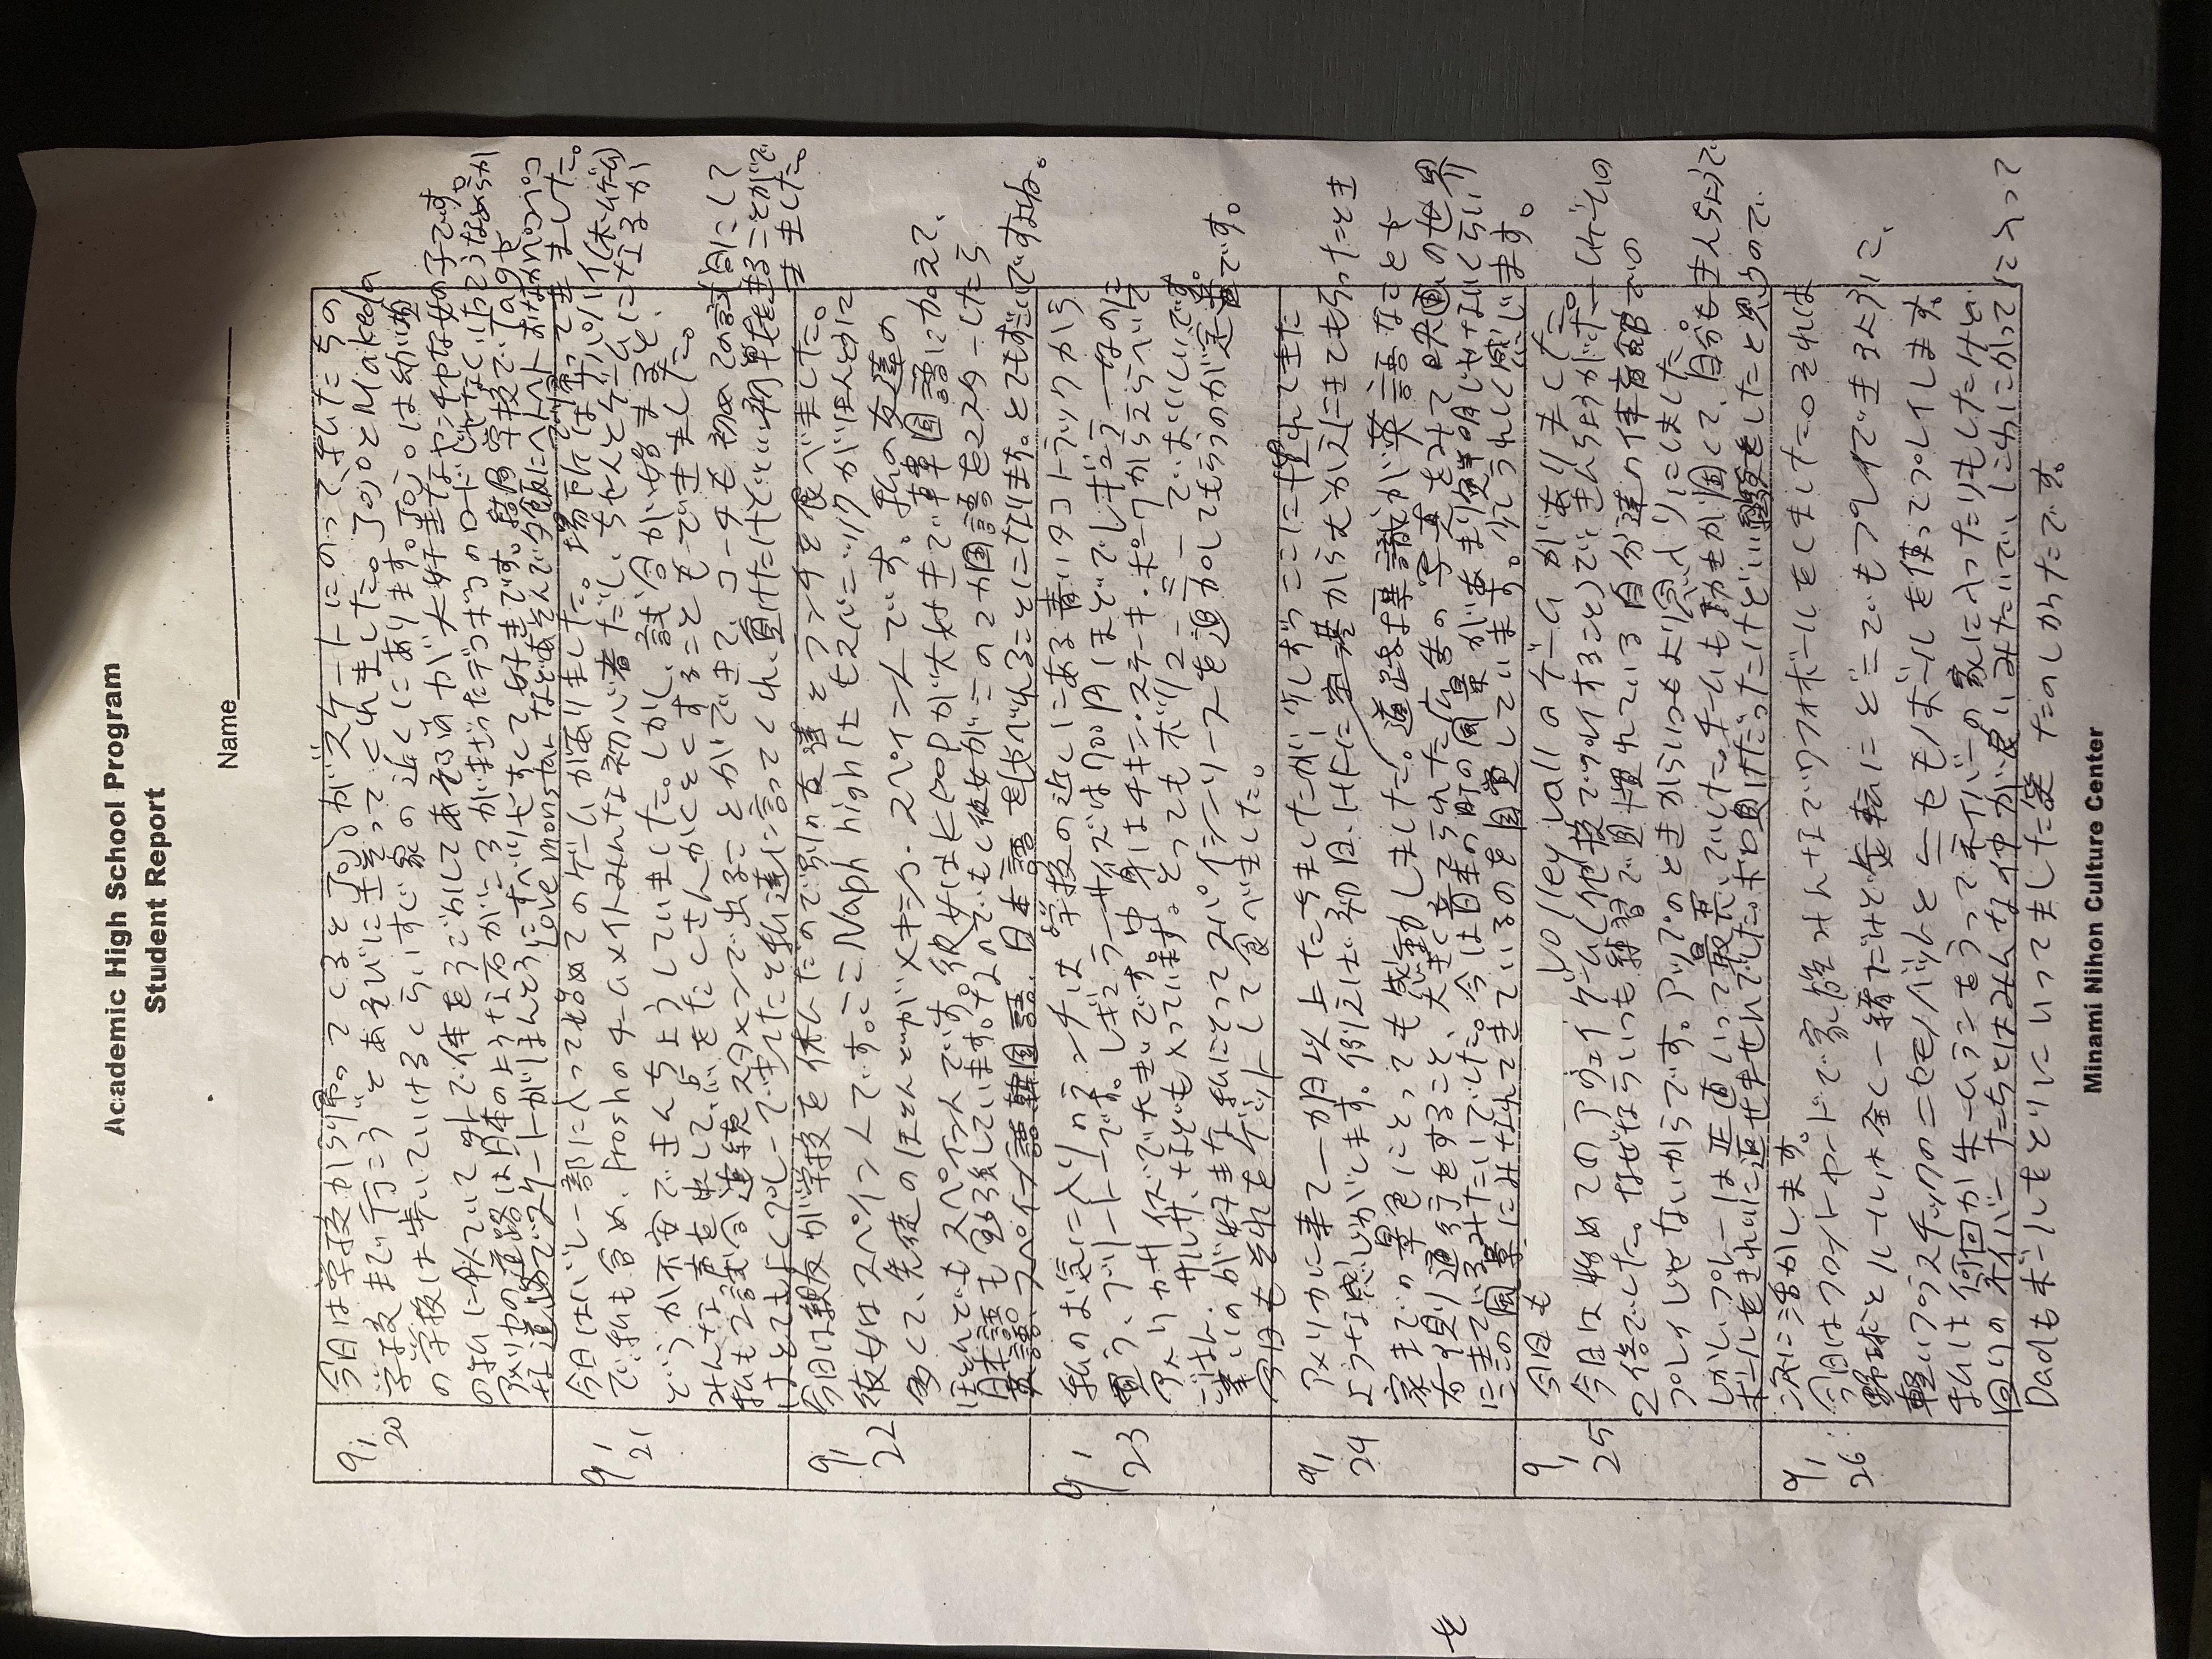 Academic High School Program
Student Report
Name
9,
20
今日は学校から帰ってくるとJojoが"スケートにのって、私たちの
学校まで行こう"とあそびにさそってくれました。JojoとMakeda
の学校は歩いていけるくらいすぐ家の近くにあります。Jojoは幼い頃
の私に似ていて外で体をうごかしてあそぶのが大好きなヤンチャな女の子です。
アメリカの道路は日本のような石がころがまざったデコボコのロードじゃなく、けっこうなめらか
な道路でスケートがほんとうにすべりやすくて好きです。結局学校でTagや
Love monstarなどあそんで夕飯にヘトヘトおなかペコペコ
で帰ってきました。
9,
21
今日はバレー部に入って始めてのゲームがありました。場所はナパハイ(ホームゲーム)
で、私も含め、Froshのチームメイトみんな初心者だし、ちゃんとゲームになるか
どうか不安できんちょうしていました。しかし、試合が始まると、
みんな声を出して、点をたくさんかくとくすることもできました。
私も2試合連続スタメンで出ることができて、コーチも初めての試合にして
はとてもよくプレーできてたと私達に言ってくれ、負けたけどいい初戦を
ることがで
きました。
9,
22
今日は親友が学校を休んだので別の友達とランチを食べました。
彼女はスペイン人です。ここNaph highはヒスパニックがほんとうに
多くて、生徒のほとんどがメキシコ・スペイン人です。私の友達の
ほとんどもスペイン人です。彼女はKPOPが大好きで韓国語に加えて、
日本語も勉強しています。なのでもし彼女がこの2カ国語をマスターしたら
英語、スペイン語、韓国語、日本語をしゃべれることになります。とてもすごいですよね。
9,
23
私のお気に入りのランチは学校の近くにある青いタコトラックから
買う、ブリートーです。レギュラーサイズは700円ほどでレギュラーなのに
アメリカサイズで大きいです。中身はチキン・ステーキ・ポークからえらべて
ごはん、サルサ、なども入っています。とってもボリューミーでおいしいです。
辛いのが好きな私にとってスパイシーソースを追加してもらうのが定番です。
今日もそれをゲットして食べました。
9,
24
アメリカに来て一カ月以上たちましたが、少しずつここに慣れてきた
ような感じがします。例えば初日、HFに空港からむかえにきてもらったとき
家までの景色にとっても感動しました。道路標識が英語なことや
右側通行をすること、大きく立てられた広告の写真をみて映画の世界
にきているみたいでした。今は日本の町の風景があまり鮮明じゃないくらい
ここの風景にみなれてきているのを自覚しています。少しうれしく感じます。
を
9,
25
今日も Volley vallのゲームがありました。
今日は始めてのアウェイゲーム(他校でプレイすること)で、きんちょうがホームゲームの
2倍でした。なぜならいつも練習で見慣れている自分達の体育館での
プレイじゃないからです。アップのときからいつもより念入りにしました。
しかし、プレーは正直いって最悪でした。チームも動きが固くて、自分もきんちょうで
ボールをきれいに返せませんでした。ボロ負けだったけどいい経験をしたと思うので
次に活かします。
9,
26
今日はフロントヤードで家族みんなでワフォボールをしました。それは
野球とルールは全く一緒だけど
にどこでもプレイできるように、
軽いプラスチックのニセモノバットとニセモノボールを使ってプレイします。
私は何回かホームランをうってネイバーの家に入ったりもしたけど
回りのネイバーたちとはみんな仲が良いみたいで、にわにかってに入って
Dadもボールをとりにいってました笑 たのしかったです。
Minami Nihon Culture Center